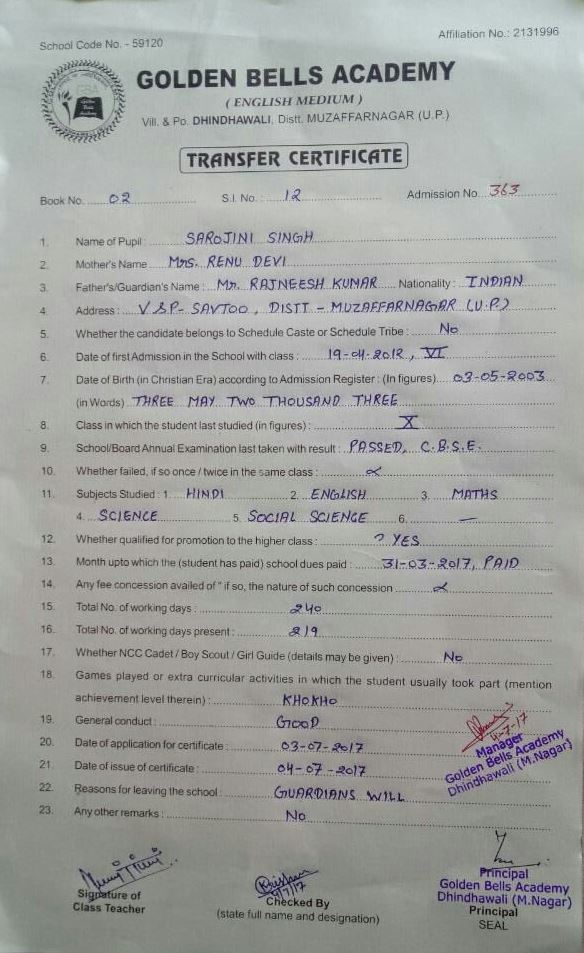 School Code No. - 59120
Affiliation No.: 2131996
GOLDEN BELLS ACADEMY
( ENGLISH MEDIUM )
Vill. & Po. DHINDHAWALI, Distt. MUZAFFARNAGAR (U.P.)
TRANSFER CERTIFICATE
Book No. 02 S.I. No.: 12 Admission No. 363
1. Name of Pupil : SAROJINI SINGH
2. Mother's Name Mrs. RENU DEVI
3. Father's/Guardian's Name : Mr. RAJNEESH KUMAR Nationality : INDIAN
4. Address : V&P- SAVTOO, DISTT - MUZAFFARNAGAR (U.P.)
5. Whether the candidate belongs to Schedule Caste or Schedule Tribe : No
6. Date of first Admission in the School with class : 19-04-2012, VI
7. Date of Birth (in Christian Era) according to Admission Register : (In figures) 03-05-2003
(in Words) THREE MAY TWO THOUSAND THREE
8. Class in which the student last studied (in figures) : X
9. School/Board Annual Examination last taken with result : PASSED, C.B.S.E.
10. Whether failed, if so once / twice in the same class :
11. Subjects Studied : 1. HINDI 2. ENGLISH 3. MATHS
4. SCIENCE 5. SOCIAL SCIENCE 6. —
12. Whether qualified for promotion to the higher class : ? YES
13. Month upto which the (student has paid) school dues paid : 31-03-2017, PAID
14. Any fee concession availed of " if so, the nature of such concession
15. Total No. of working days : 240
16. Total No. of working days present : 219
17. Whether NCC Cadet / Boy Scout / Girl Guide (details may be given) : No
18. Games played or extra curricular activities in which the student usually took part (mention
achievement level therein) : KHOKHO
19. General conduct : GOOD
20. Date of application for certificate : 03-07-2017
21. Date of issue of certificate : 04-07-2017
22. Reasons for leaving the school : GUARDIANS WILL
23. Any other remarks : No
4-7-17
Manager
Golden Bells Academy
Dhindhawali (M.Nagar)
Signature of
Class Teacher
4/7/17
Checked By
(state full name and designation)
Principal
Golden Bells Academy
Dhindhawali (M.Nagar)
Principal
SEAL